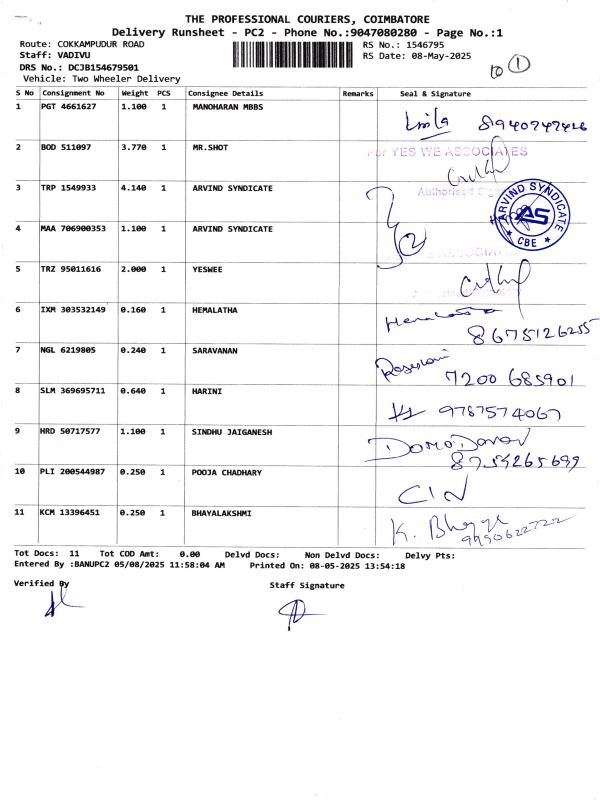 THE PROFESSIONAL COURIERS, COIMBATORE
Delivery Runsheet - PC2 - Phone No.:9047080280 - Page No.:1
Route: COKKAMPUDUR ROAD
RS No.: 1546795
Staff: VADIVU
RS Date: 08-May-2025
DRS No.: DCJB154679501
Vehicle: Two Wheeler Delivery
10 1
S No Consignment No Weight PCS Consignee Details Remarks Seal & Signature
1 PGT 4661627 1.100 1 MANOHARAN MBBS
8940747426
2 BOD 511097 3.770 1 MR.SHOT
For YES WE ASSOCIATES
Authorised
3 TRP 1549933 4.140 1 ARVIND SYNDICATE
ARVIND SYNDICATE
AS
★ CBE ★
4 MAA 706900353 1.100 1 ARVIND SYNDICATE
2
5 TRZ 95011616 2.000 1 YESWEE
6 IXM 303532149 0.160 1 HEMALATHA
Hemalatha
8675126255
7 NGL 6219805 0.240 1 SARAVANAN
7200 685901
8 SLM 369695711 0.640 1 HARINI
9787574067
9 HRD 50717577 1.100 1 SINDHU JAIGANESH
8754265699
10 PLI 200544987 0.250 1 POOJA CHADHARY
11 KCM 13396451 0.250 1 BHAYALAKSHMI
9990622722
Tot Docs: 11 Tot COD Amt: 0.00 Delvd Docs: Non Delvd Docs: Delvy Pts:
Entered By :BANUPC2 05/08/2025 11:58:04 AM Printed On: 08-05-2025 13:54:18
Verified By Staff Signature